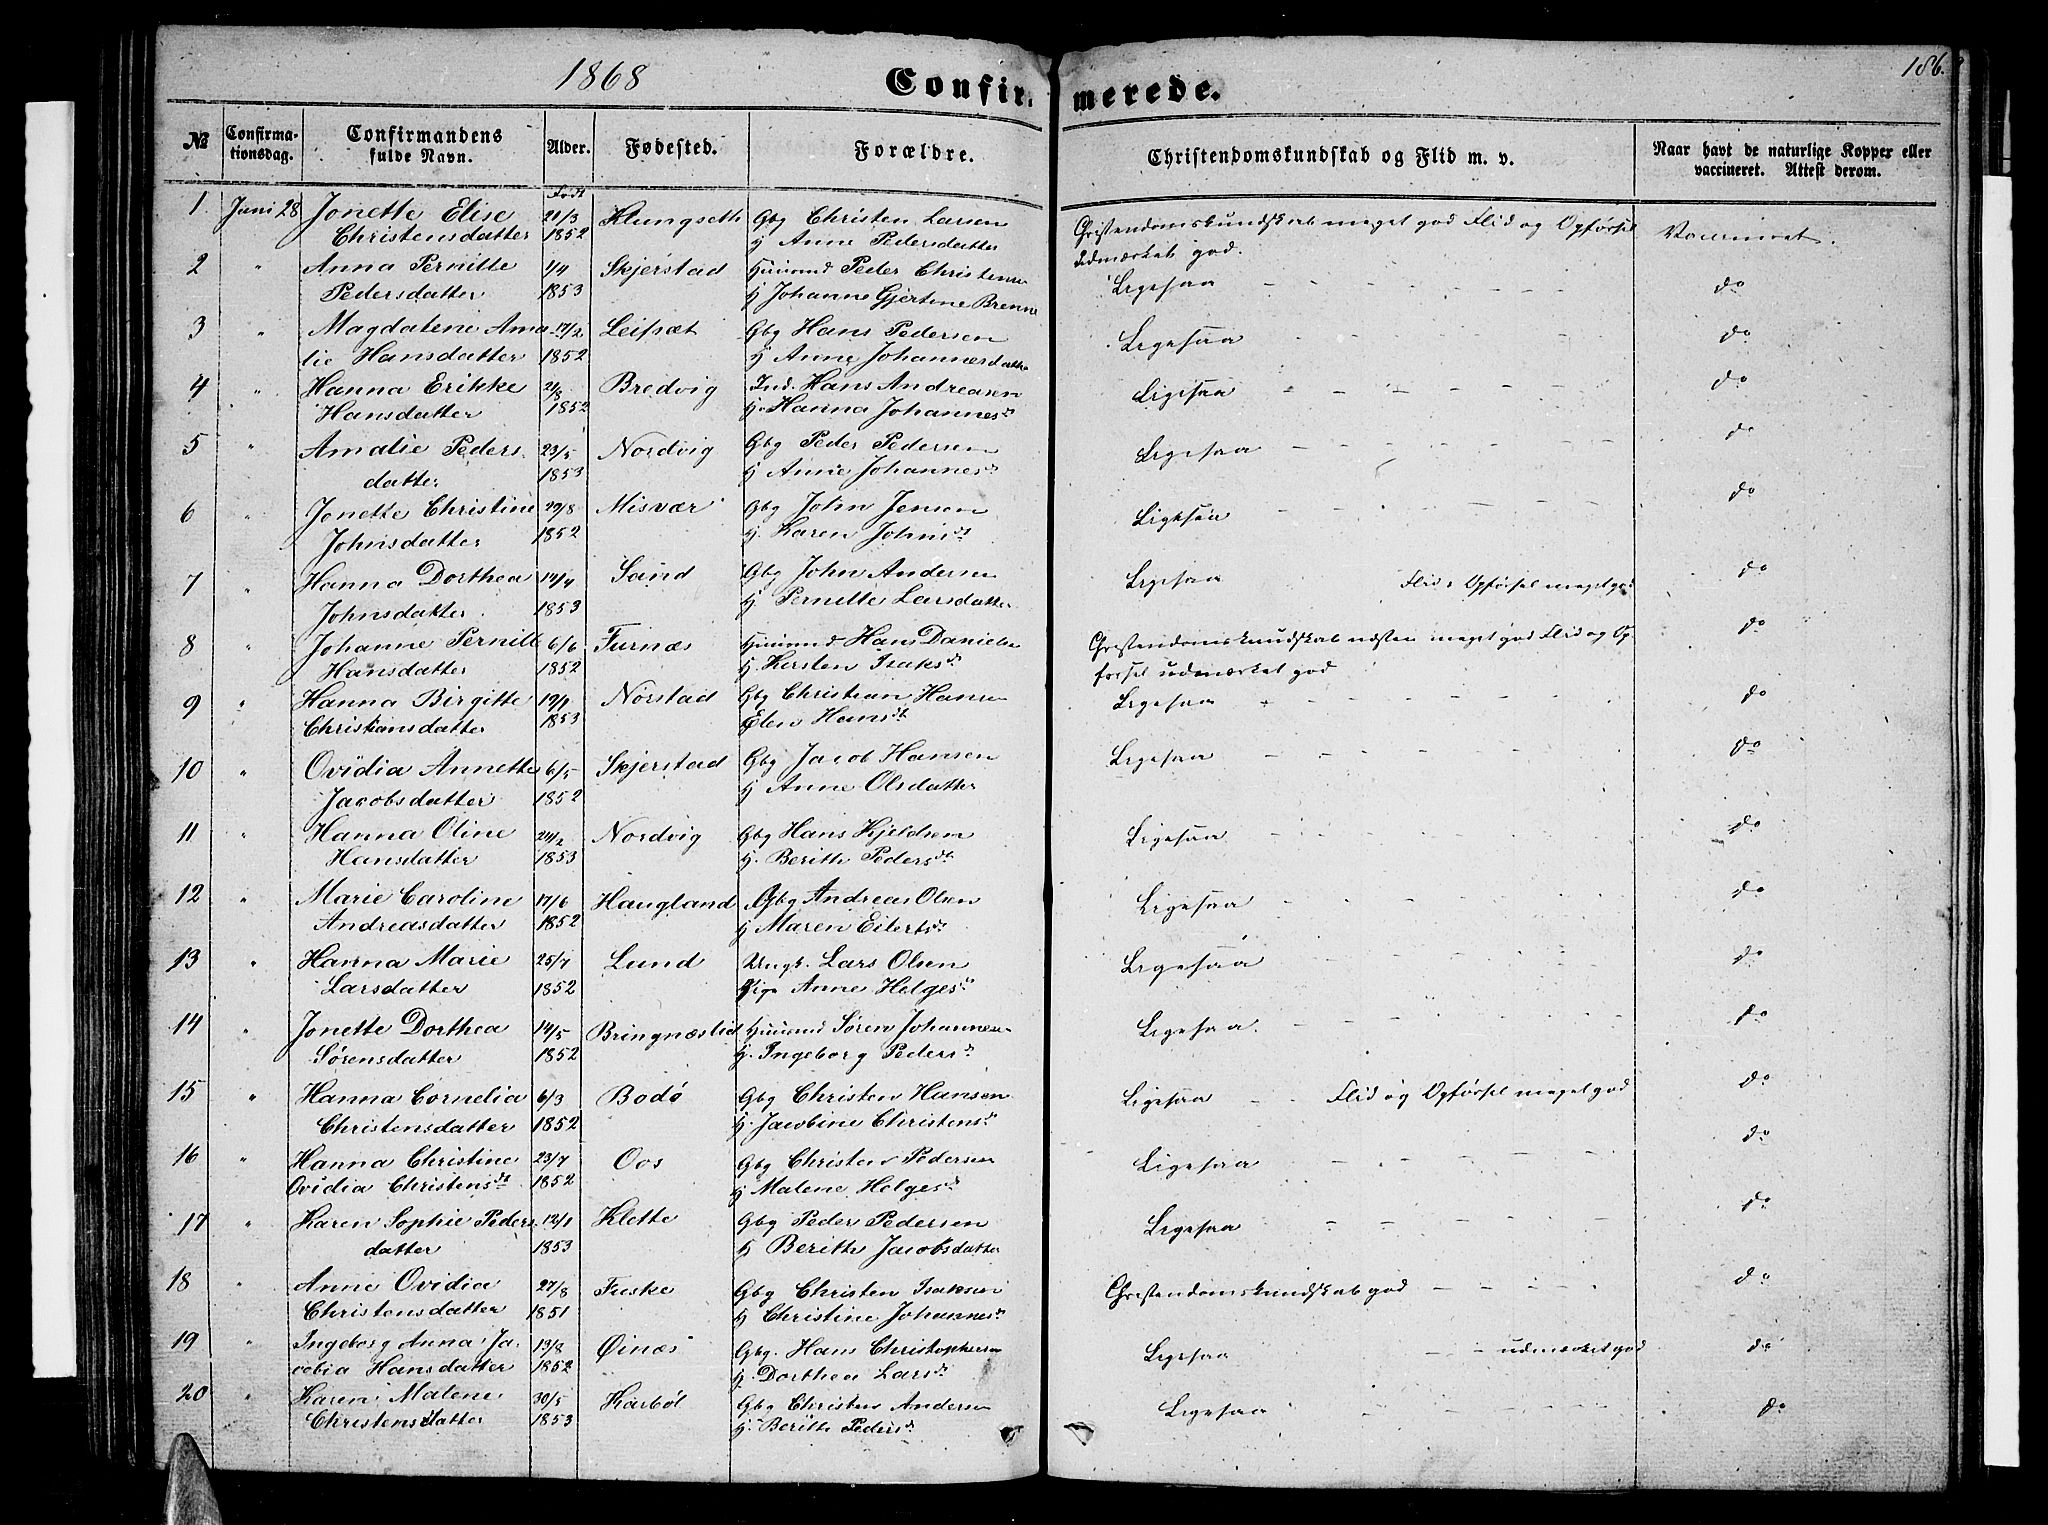 1868
Confirmerede.
186.
№
Confirmationsdag.
Confirmandens fulde Navn.
Alder.
Fødested.
Forældre.
Christendomskundskab og Flid m. v.
Naar havt de naturlige Kopper eller vaccineret. Attest derom.
Født
1 Juni 28 Jonette Elise 21/3 Klungseth Gbg Christen Larsen Christendomskundskab meget god Flid og Opførsel Vaccineret.
Christensdatter 1852 H Anne Pedersdatter udmærket god.
2 " Anna Pernille 1/4 Skjerstad Huusmd Peder Christensen Ligesaa - - - - - - do
Pedersdatter 1853 H Johanne Gjertine Brenne
3 " Magdalene Ama 17/2 Leifsæt Gbg Hans Pedersen Ligesaa - - - - - - do
lie Hansdatter 1852 H Anne Johannesdatter
4 " Hanna Erikke 21/8 Bredvig Ind. Hans Andreasen Ligesaa - - - - - - do
Hansdatter 1852 H. Hanna Johannesdt
5 " Amalie Peders 23/5 Nordvig Gbg Peder Pedersen Ligesaa - - - - - - do
datter 1853 H Anne Johannesdt
6 " Jonette Christine 29/8 Misvær Gbg John Jensen Ligesaa - - - - - - do
Johnsdatter 1852 H. Karen Johnsdt
7 " Hanna Dorthea 14/4 Sand Gbg John Andersen Ligesaa Flid o Opførsel meget god do
Johnsdatter 1853 H Pernille Larsdatter
8 " Johanne Pernille 6/6 Furnæs Huusmd Hans Danielsen Christendomskundskab næsten meget god Flid og Op do
Hansdatter 1852 H. Kirsten Isaksdt førsel udmærket god
9 " Hanna Birgitte 19/1 Norstad Gbg Christian Hansen Ligesaa - - - - - - do
Christiansdatter 1853 Elen Hansdt
10 " Ovidia Annette 6/5 Skjerstad Gbg Jacob Hansen Ligesaa - - - - - - do
Jacobsdatter 1852 H Anne Olsdatter
11 " Hanna Oline 24/2 Nordvig Gbg Hans Kjeldsen Ligesaa - - - - - - do
Hansdatter 1853 H. Berith Pedersdt
12 " Marie Caroline 17/6 Haugland Gbg Andreas Olsen Ligesaa - - - - - - do
Andreasdatter 1852 H Maren Eilertsdt
13 " Hanna Marie 25/7 Lund Ungk. Lars Olsen Ligesaa - - - - - - do
Larsdatter 1852 Pige Anne Helgesdt
14 " Jonette Dorthea 14/5 Bringnæslid Huusmd Søren Johannesen Ligesaa - - - - - - do
Sørensdatter 1852 H. Ingeborg Pedersdt
15 " Hanna Cornelia 6/3 Bodø Gbg Christen Hansen Ligesaa - - Flid og Opførsel meget god do
Christensdatter 1852 H. Jacobine Christensdt
16 " Hanna Christine 23/7 Oos Gbg Christen Pedersen Ligesaa - - - - - - do
Ovidia Christensdt 1852 H Malene Helgesdt
17 " Karen Sophie Peders 12/1 Klette Gbg Peder Pedersen Ligesaa - - - - - - do
datter 1853 H Berith Jacobsdatter
18 " Anne Ovidia 27/8 Fuske Gbg Christen Isaksen Christendomskundskab god - - - - do
Christensdatter 1851 H Christine Johannesdt
19 " Ingeborg Anna Ja- 13/8 Øinæs Gbg. Hans Christophersen Ligesaa - - udmærket god do
cobia Hansdatter 1852 H. Dorthea Larsdt
20 " Karen Malene 30/5 Karbøl Gbg Christen Andersen Ligesaa - - - - - - do
Christensdatter 1853 H. Berith Pedersdt